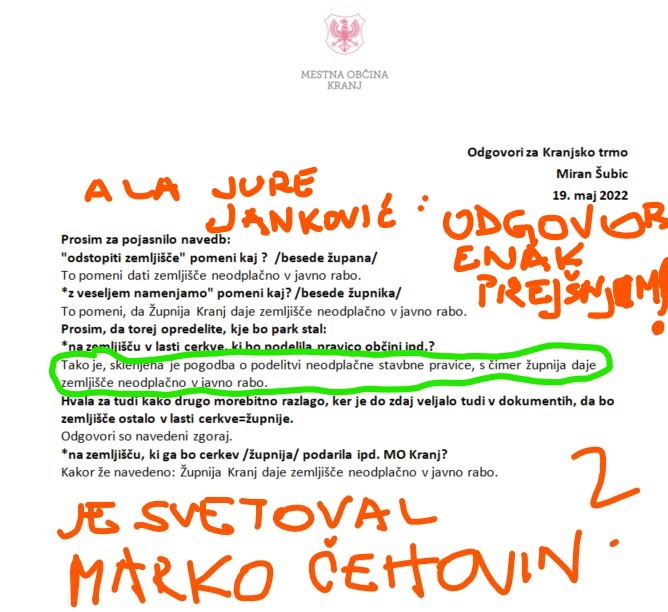 MESTNA OBČINA
KRANJ
Odgovori za Kranjsko trmo
Miran Šubic
19. maj 2022
A LA JURE
JANKOVIĆ: ODGOVOR
ENAK
PREJŠNJEMU!
Prosim za pojasnilo navedb:
"odstopiti zemljišče" pomeni kaj ? /besede župana/
To pomeni dati zemljišče neodplačno v javno rabo.
*z veseljem namenjamo" pomeni kaj? /besede župnika/
To pomeni, da Župnija Kranj daje zemljišče neodplačno v javno rabo.
Prosim, da torej opredelite, kje bo park stal:
*na zemljišču v lasti cerkve, ki bo podelila pravico občini ipd.?
Tako je, sklenjena je pogodba o podelitvi neodplačne stavbne pravice, s čimer župnija daje
zemljišče neodplačno v javno rabo.
Hvala za tudi kako drugo morebitno razlago, ker je do zdaj veljalo tudi v dokumentih, da bo
zemljišče ostalo v lasti cerkve=župnije.
Odgovori so navedeni zgoraj.
*na zemljišču, ki ga bo cerkev /župnija/ podarila ipd. MO Kranj?
Kakor že navedeno: Župnija Kranj daje zemljišče neodplačno v javno rabo.
2
JE SVETOVAL
MARKO ČEHOVIN.